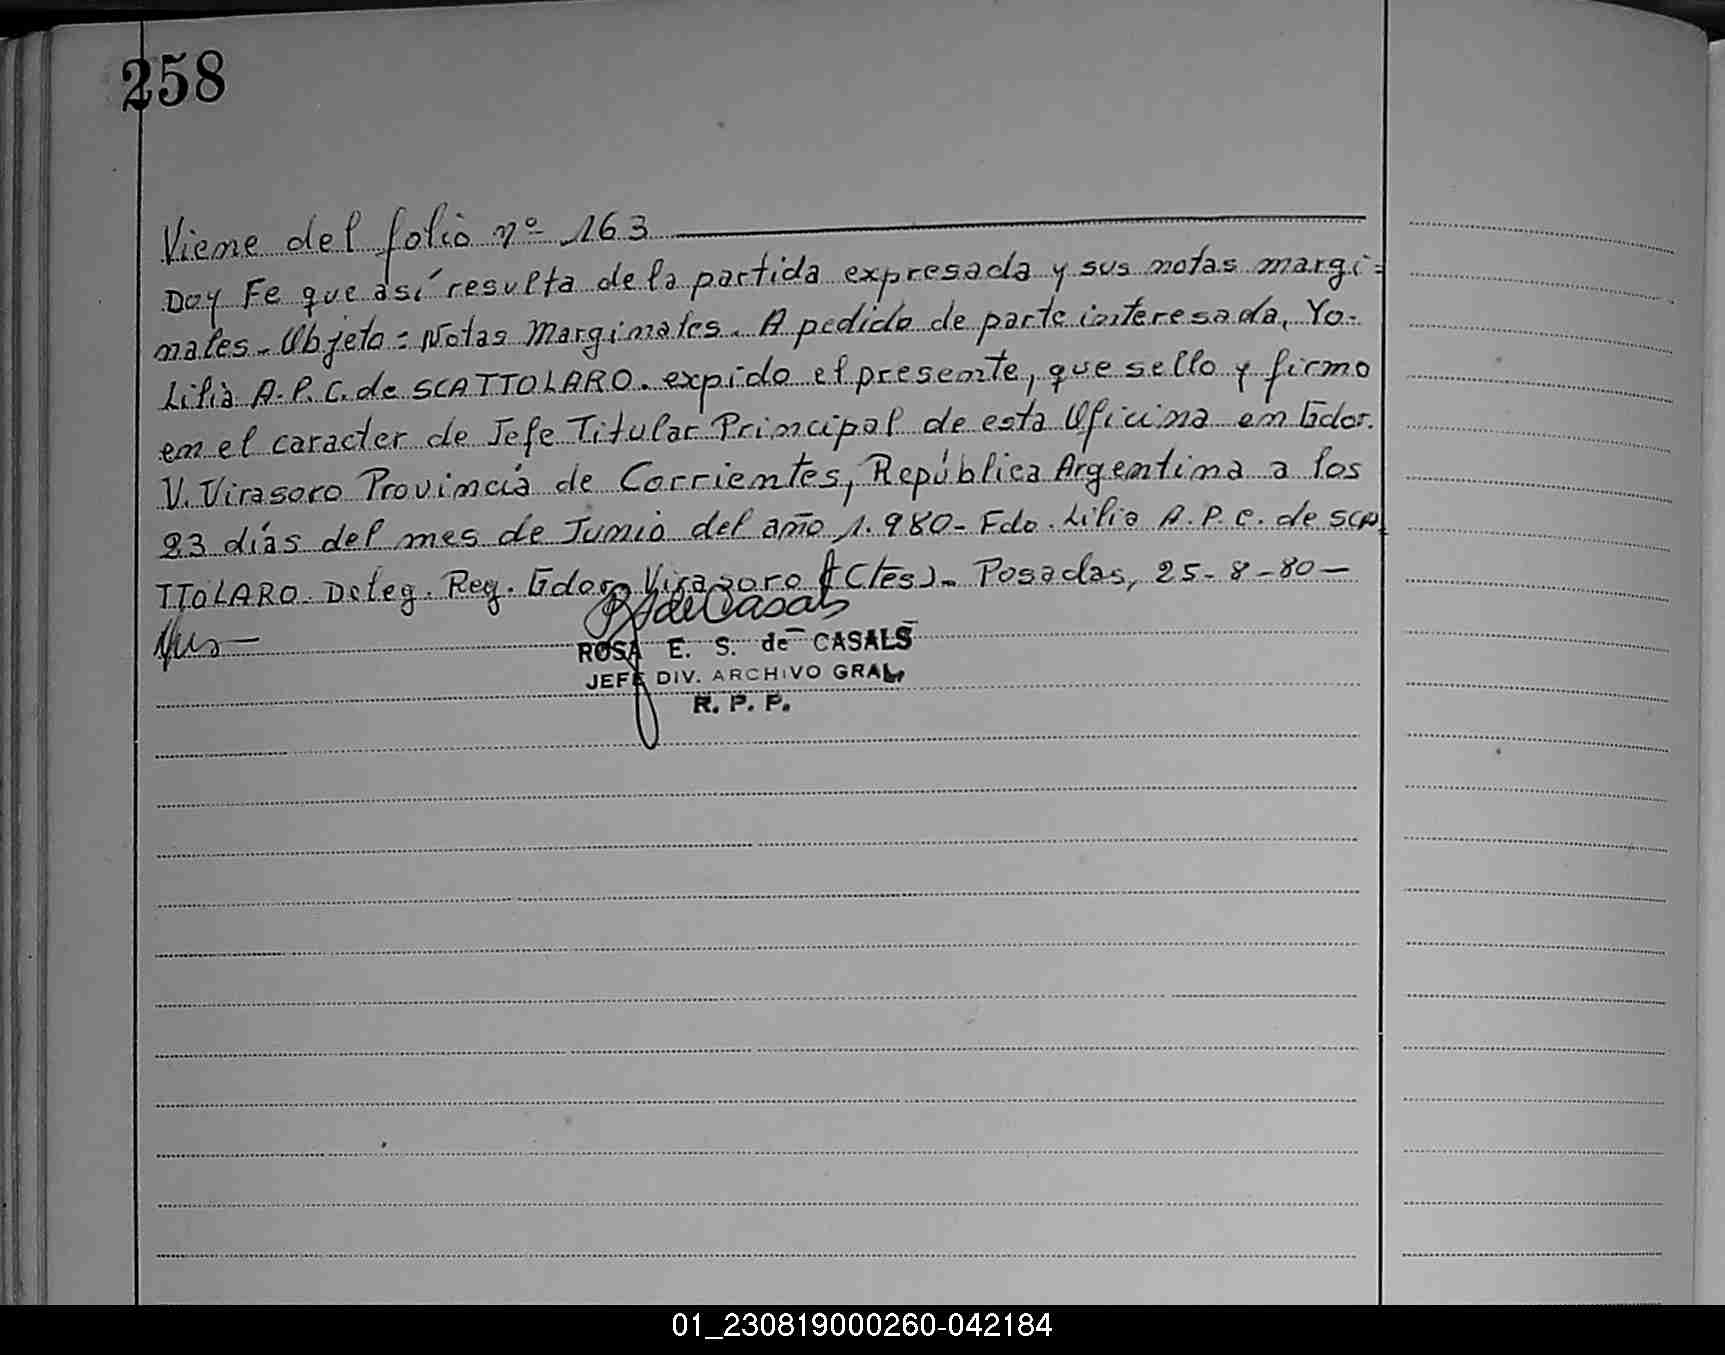 258
Viene del folio nº 163
Doy Fe que así resulta de la partida expresada y sus notas margi=
nales. Objeto = Notas Marginales. A pedido de parte interesada, Yo-
Lilia A. P. C. de SCATTOLARO. expido el presente, que sello y firmo
en el caracter de Jefe Titular Principal de esta Oficina en Gdor.
V. Virasoro Provincia de Corrientes, República Argentina a los
23 días del mes de Junio del año 1.980- Fdo. Lilia A. P. C. de SCA
TTOLARO. Deleg. Reg. Gdor. Virasoro (Ctes). Posadas, 25-8-80-
ROSA E. S. de CASALS
JEFE DIV. ARCHIVO GRAL.
R. P. P.
01_230819000260-042184